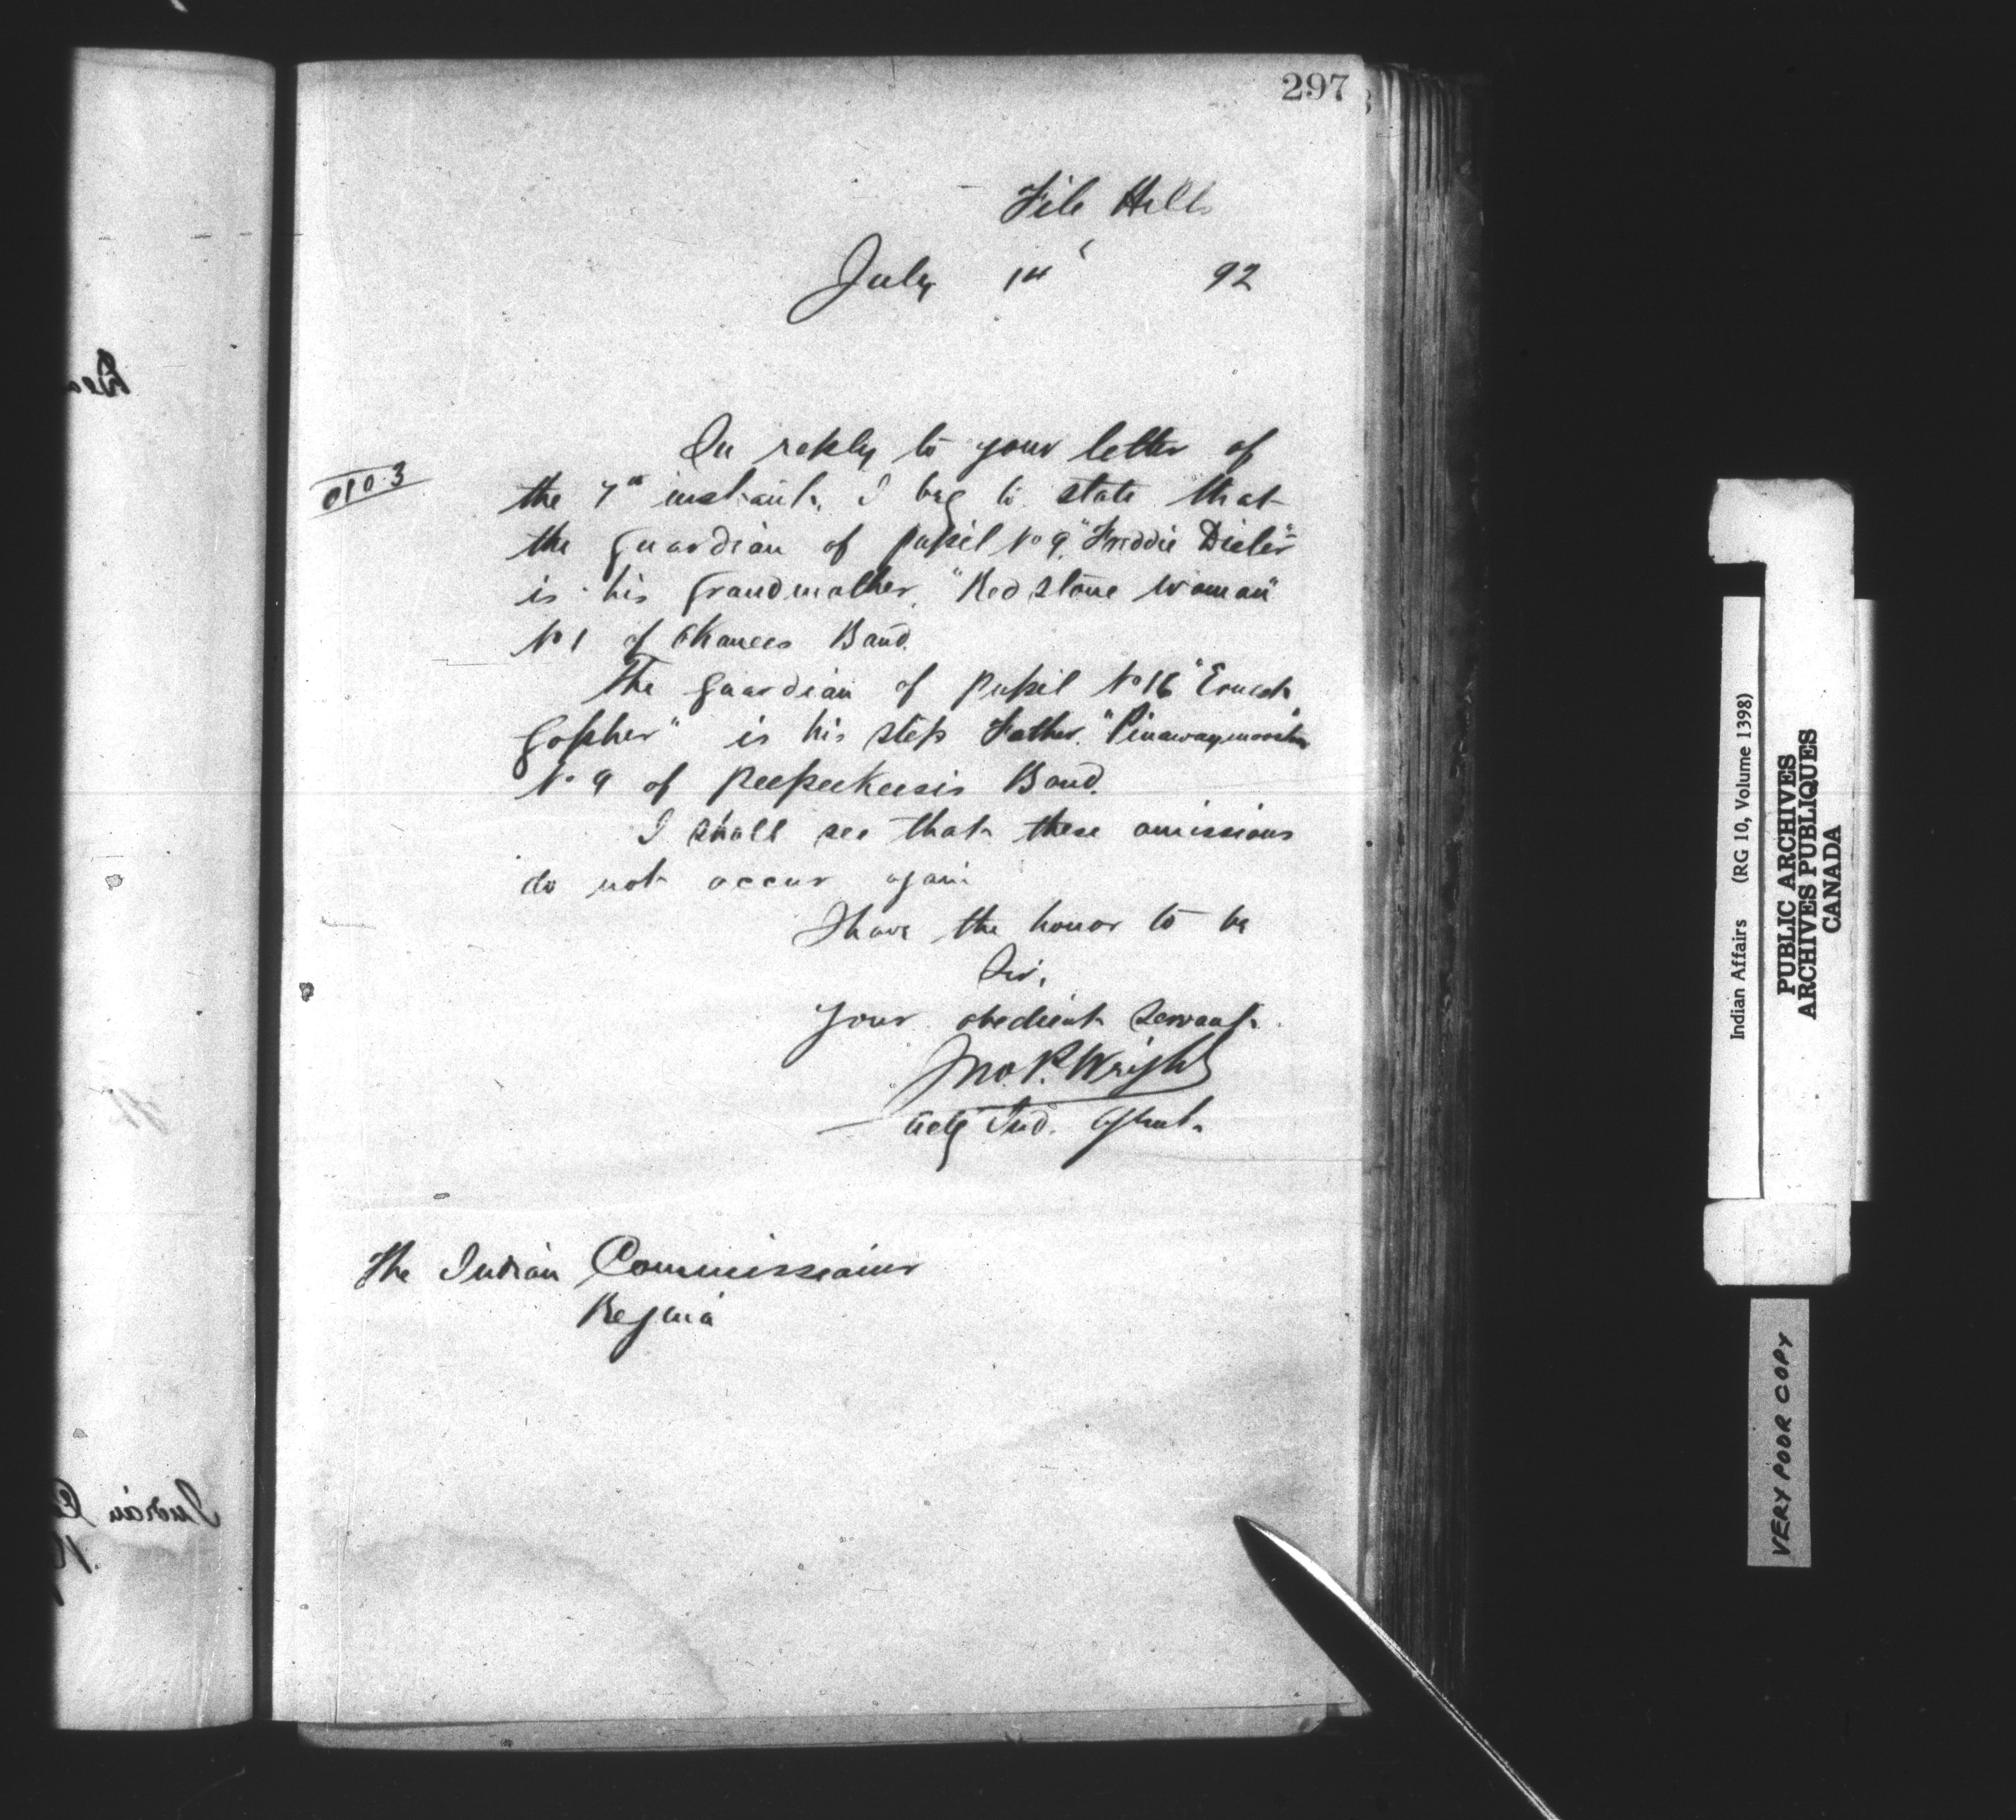 297
File Hills
July 14' 92
In reply to your letter of
0103
the 7th instant, I beg to state that
the guardian of pupil No 9, "Freddie Dieter"
is his Grandmother, "Red Stone Woman"
No 1 of Okanees Band.
The guardian of pupil No 16 "Ernest
Gopher" is his step Father,
No 9 of Peepeekeesis Band.
I shall see that these omissions
do not occur again
I have the honor to be
Sir,
Your obedient Servant.
Jno. P. Wright
Actg Ind. Agent.
The Indian Commissioner
Regina
Indian
Indian Affairs (RG 10, Volume 1398)
PUBLIC ARCHIVES
ARCHIVES PUBLIQUES
CANADA
VERY POOR COPY